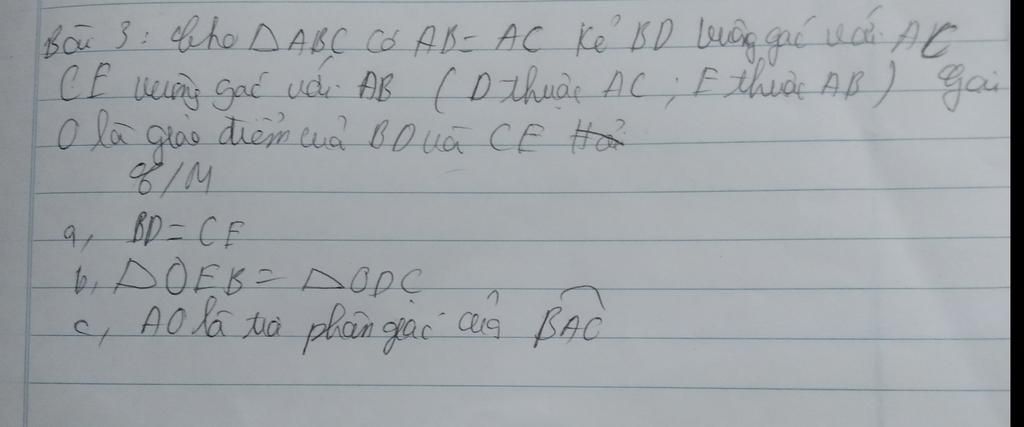 Bài 3: Cho △ABC có AB = AC Kẻ BD vuông góc với AC
CE vuông góc với AB (D thuộc AC; E thuộc AB) Gọi
O là giao điểm của BD và CE
C/M
a, BD = CE
b, △OEB = △ODC
c, AO là tia phân giác của BAC